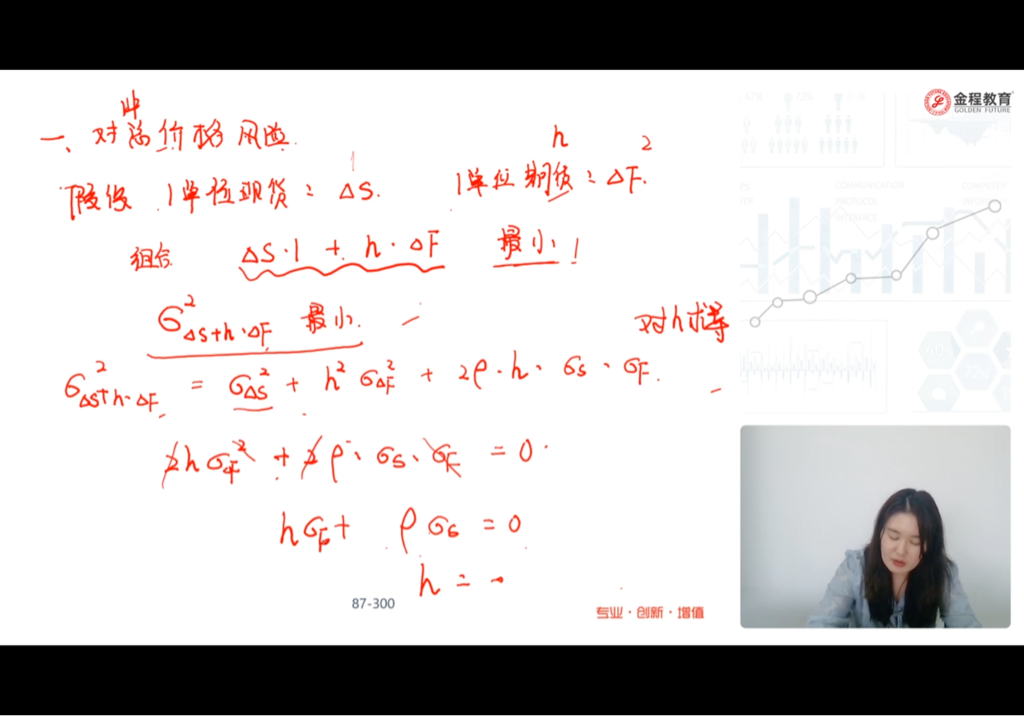 金程教育
GOLDEN FUTURE
一、对冲价格风险.
h 2
假设 1单位现货：ΔS. 1单位期货：ΔF.
组合 ΔS·1 + h·ΔF 最小！
σ²ΔS+h·ΔF 最小.
对h求导
σ²ΔS+h·ΔF = σ²ΔS + h²σ²ΔF + 2ρ·h·σS·σF.
2hσF² + 2ρ·σS·σF = 0
hσF + ρσS = 0
h = -
87-300
专业·创新·增值